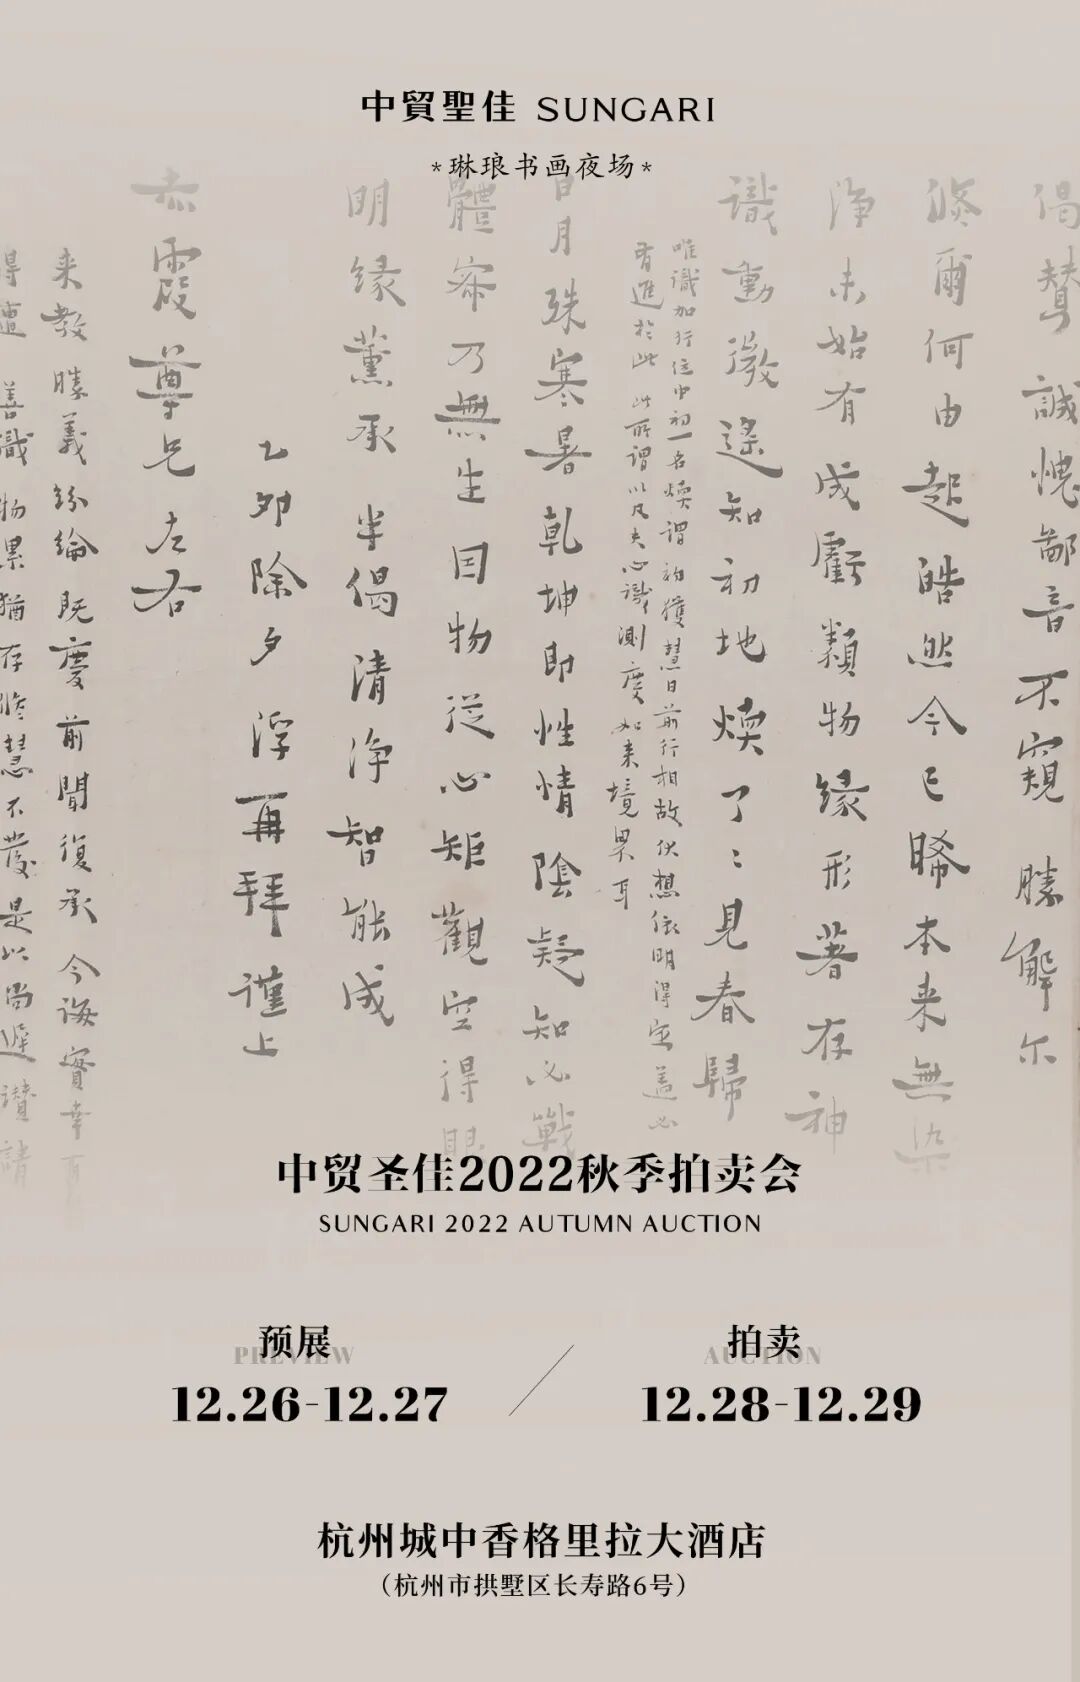 中貿聖佳 SUNGARI
*琳琅书画夜场*
偈贊 誠愧鄙音不窺 勝解尔
修爾何由起皓然今已晞本来無染
淨未始有成虧類物緣形著存神
識動微遙知初地煗了〻見春歸
唯識加行位中初一名煗謂初獲慧日前行相故伏想依明得定蓋必
有進於此 此所謂以凡夫心識測度如来境界耳
日月殊寒暑乾坤即性情陰疑知必戰
體寂乃無生因物從心矩觀空得眼
明緣薰承半偈清淨智能成
乙卯除夕浮再拜謹上
赤霞尊兄左右
来教勝義紛綸既慶前聞復承今誨實幸再
得遭 善識物累猶存修慧不發是以尚遲讚請
中贸圣佳2022秋季拍卖会
SUNGARI 2022 AUTUMN AUCTION
预展
PREVIEW
12.26-12.27
拍卖
AUCTION
12.28-12.29
杭州城中香格里拉大酒店
（杭州市拱墅区长寿路6号）